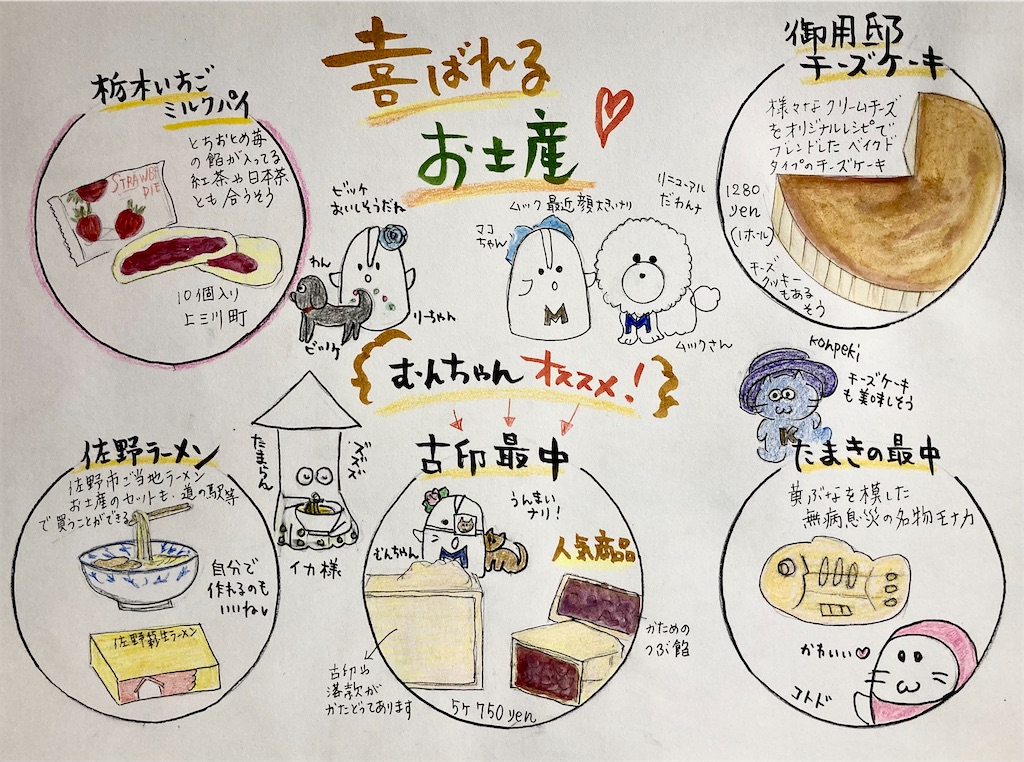 喜ばれる
お土産
栃木いちご
ミルクパイ
とちおとめ苺
の餡が入ってる
紅茶や日本茶
とも合うそう
STRAWBE
PIE
10個入り
上三川町
ビッケ
おいしそうだね
わん
ビッケ
りーちゃん
ムック最近顔大きいナリ
マコ
ちゃん
リニューアル
だわんナ
M
M
ムックさん
御用邸
チーズケーキ
様々なクリームチーズ
をオリジナルレシピで
ブレンドした ベイクド
タイプのチーズケーキ
1280
yen
(1ホール)
チーズ
クッキー
もある
そう
むんちゃん オススメ!
Konpeki
チーズケーキ
も美味しそう
K
佐野ラーメン
佐野市ご当地ラーメン
お土産のセットも道の駅等
で買うことができる
自分で
作れるのも
いいね
佐野生ラーメン
たまらん
ズズズ
イカ様
古印最中
うんまい
ナリ!
むんちゃん
M
人気商品
かための
つぶ餡
古印は
落款が
かたどってあります
5ケ 750 yen
たまきの最中
黄ぶなを模した
無病息災の名物モナカ
かわいい
コトド